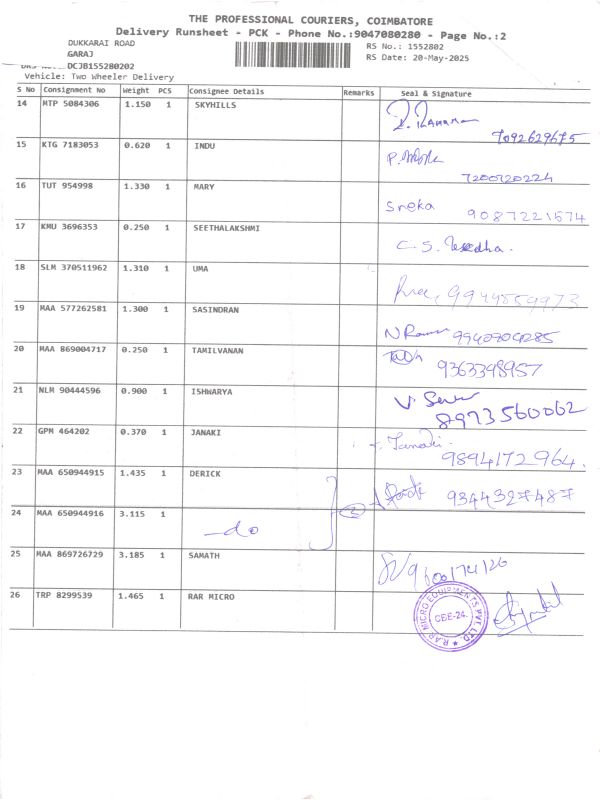 THE PROFESSIONAL COURIERS, COIMBATORE
Delivery Runsheet - PCK - Phone No.:9047080280 - Page No.:2
DUKKARAI ROAD
GARAJ
RS No.: 1552802
RS Date: 20-May-2025
DCJB155280202
Vehicle: Two Wheeler Delivery
S No Consignment No Weight PCS Consignee Details Remarks Seal & Signature
14 MTP 5084306 1.150 1 SKYHILLS
7092629675
15 KTG 7183053 0.620 1 INDU
7200720224
16 TUT 954998 1.330 1 MARY Sneka 9087221574
17 KMU 3696353 0.250 1 SEETHALAKSHMI C.S.
18 SLM 370511962 1.310 1 UMA 9944859973
19 MAA 577262581 1.300 1 SASINDRAN
20 MAA 869004717 0.250 1 TAMILVANAN
9363398957
21 NLM 90444596 0.900 1 ISHWARYA
8973560062
22 GPM 464202 0.370 1 JANAKI Janaki.
9894172964.
23 MAA 650944915 1.435 1 DERICK 9344327487
24 MAA 650944916 3.115 1 -do 2
25 MAA 869726729 3.185 1 SAMATH 9600174126
26 TRP 8299539 1.465 1 RAR MICRO
RAR MICRO EQUIPMENTS PVT. LTD. ★
CBE-24.